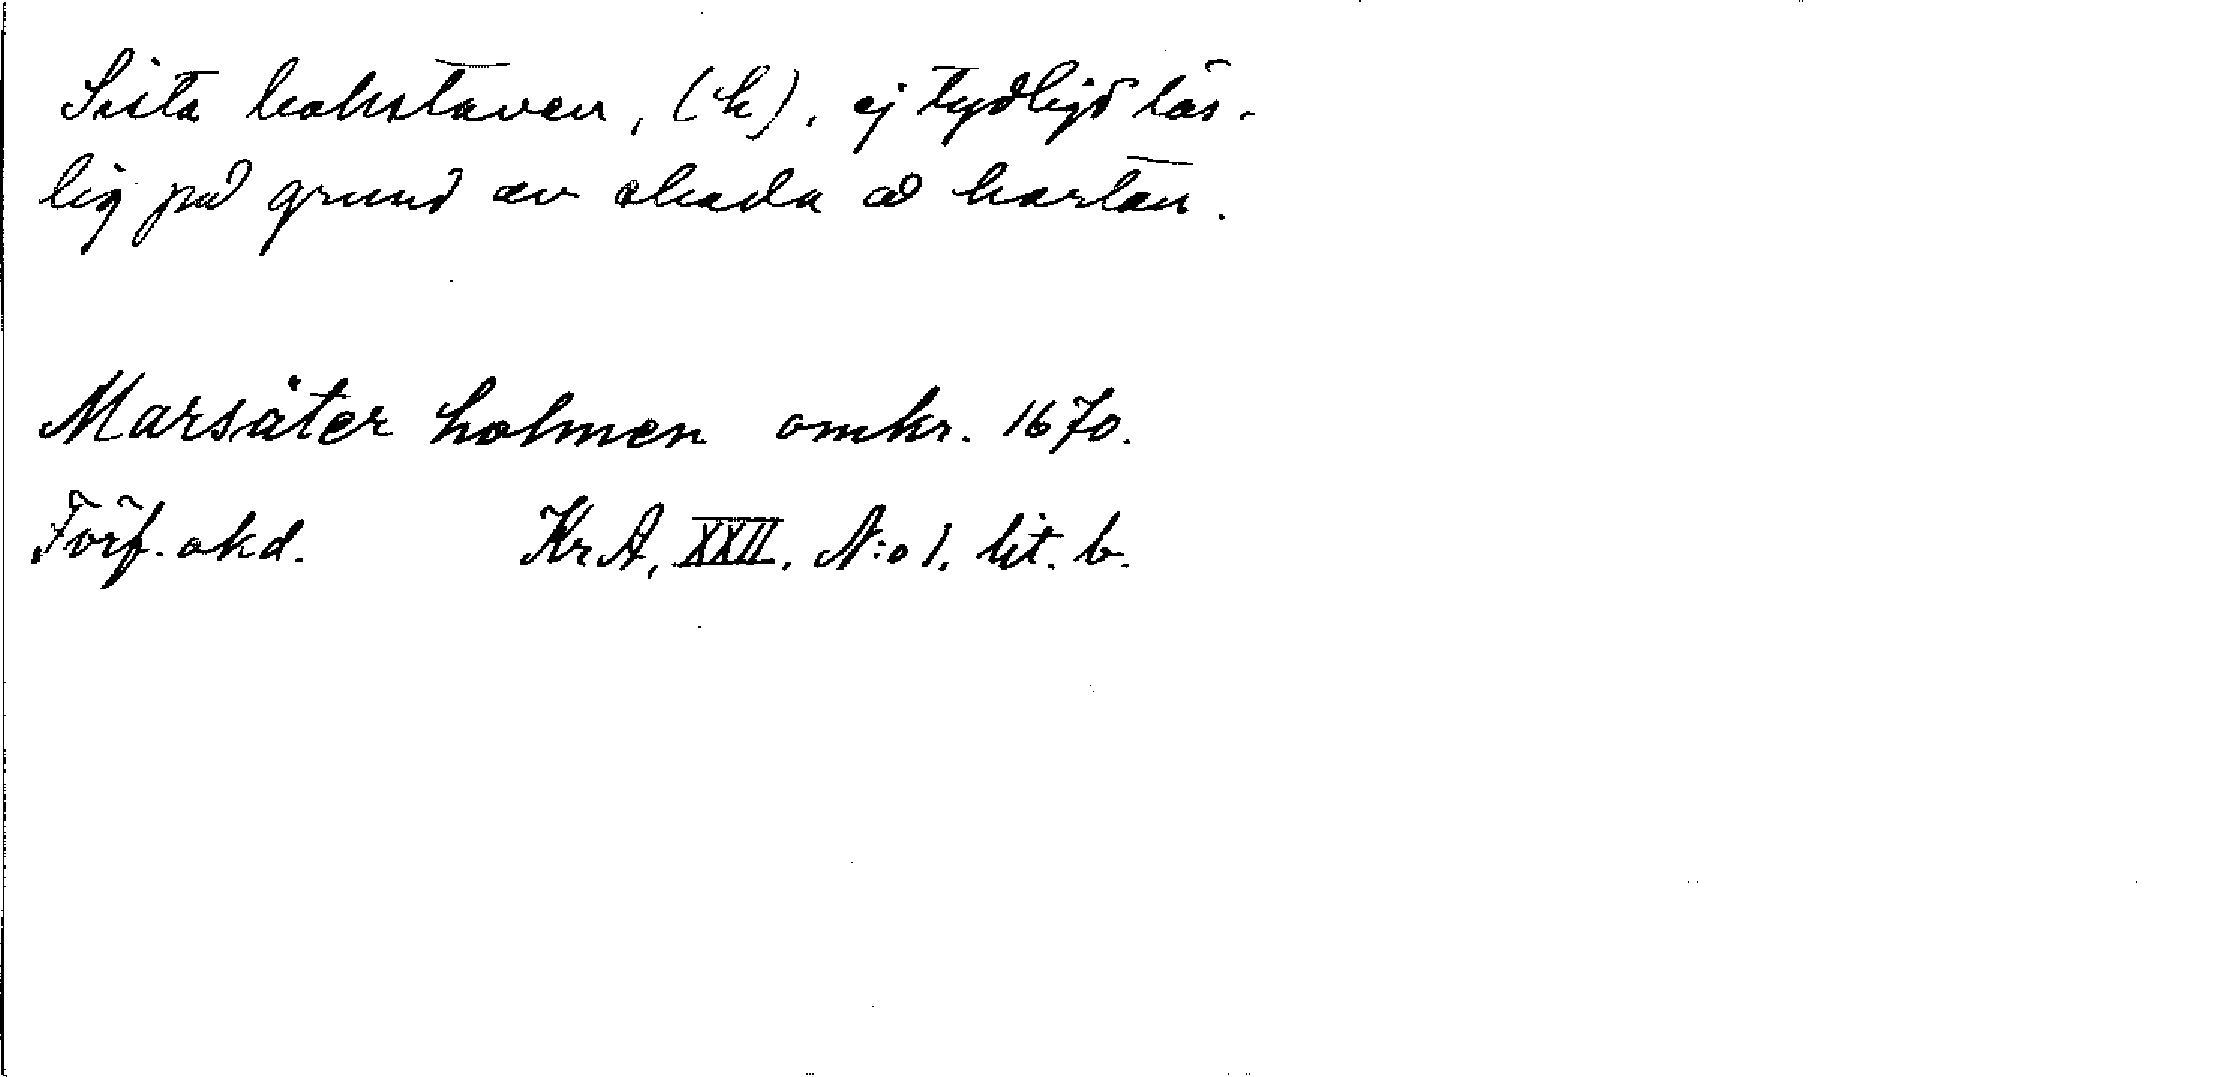 Sista bokstaven, (k), ej tydligt läs-
lig på grund av skada å kartan.
Marsäter holmen omkr. 1670.
Förf. okd. KrA, XXII. N:o 1. lit. b.